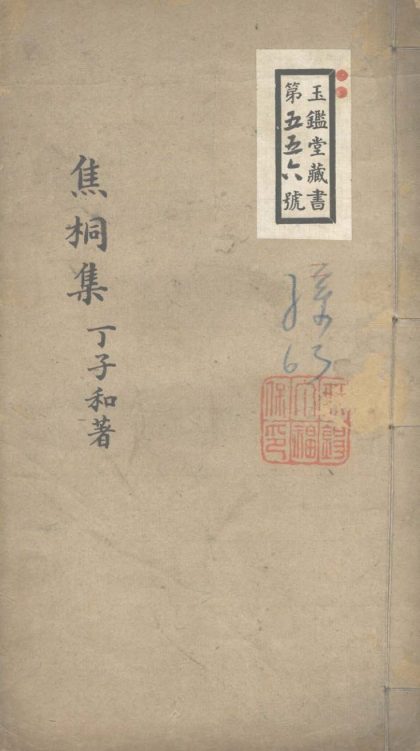 玉鑑堂藏書
第五五六號
焦桐集
丁子和著